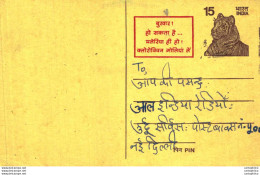 बुखार!
हो सकता है ..
मलेरिया ही हो!
क्लोरोक्विन गोलियां लें
15 भारत
INDIA
To,
आप की पसन्द
आल इन्डिया रेडियो
उर्दू सर्विस पोस्ट बाक्स नं-
नई दिल्ली
पिन PIN